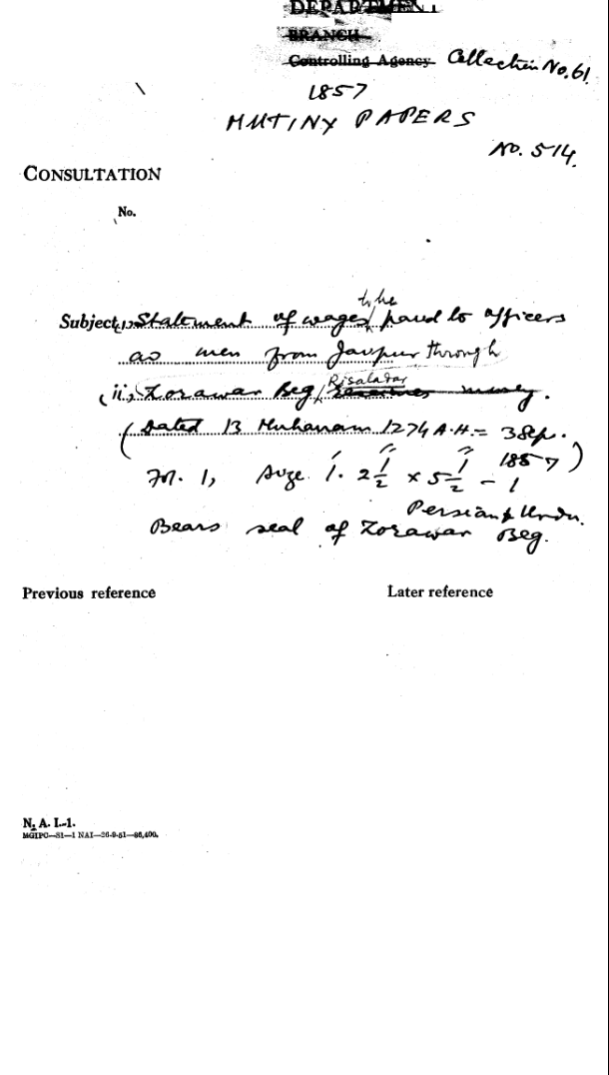 DEPARTMENT
BRANCH
Controlling Agency Collection No. 61.
1857
MUTINY PAPERS
No. 514.
CONSULTATION
No.
Subject (i) Statement of wages to be paid to officers
as men from Jaipur through
(ii) Zorawar Beg, Risaladar
(Dated 13 Muharram 1274 A.H. = 3 Sep. 1857)
Fol. 1, 1. 2½" × 5½" - 1
Persian & Urdu.
Bears seal of Zorawar Beg.
Previous reference
Later reference
N. A. I.-1.
MGIPC—S1—1 NAI—26-9-51—